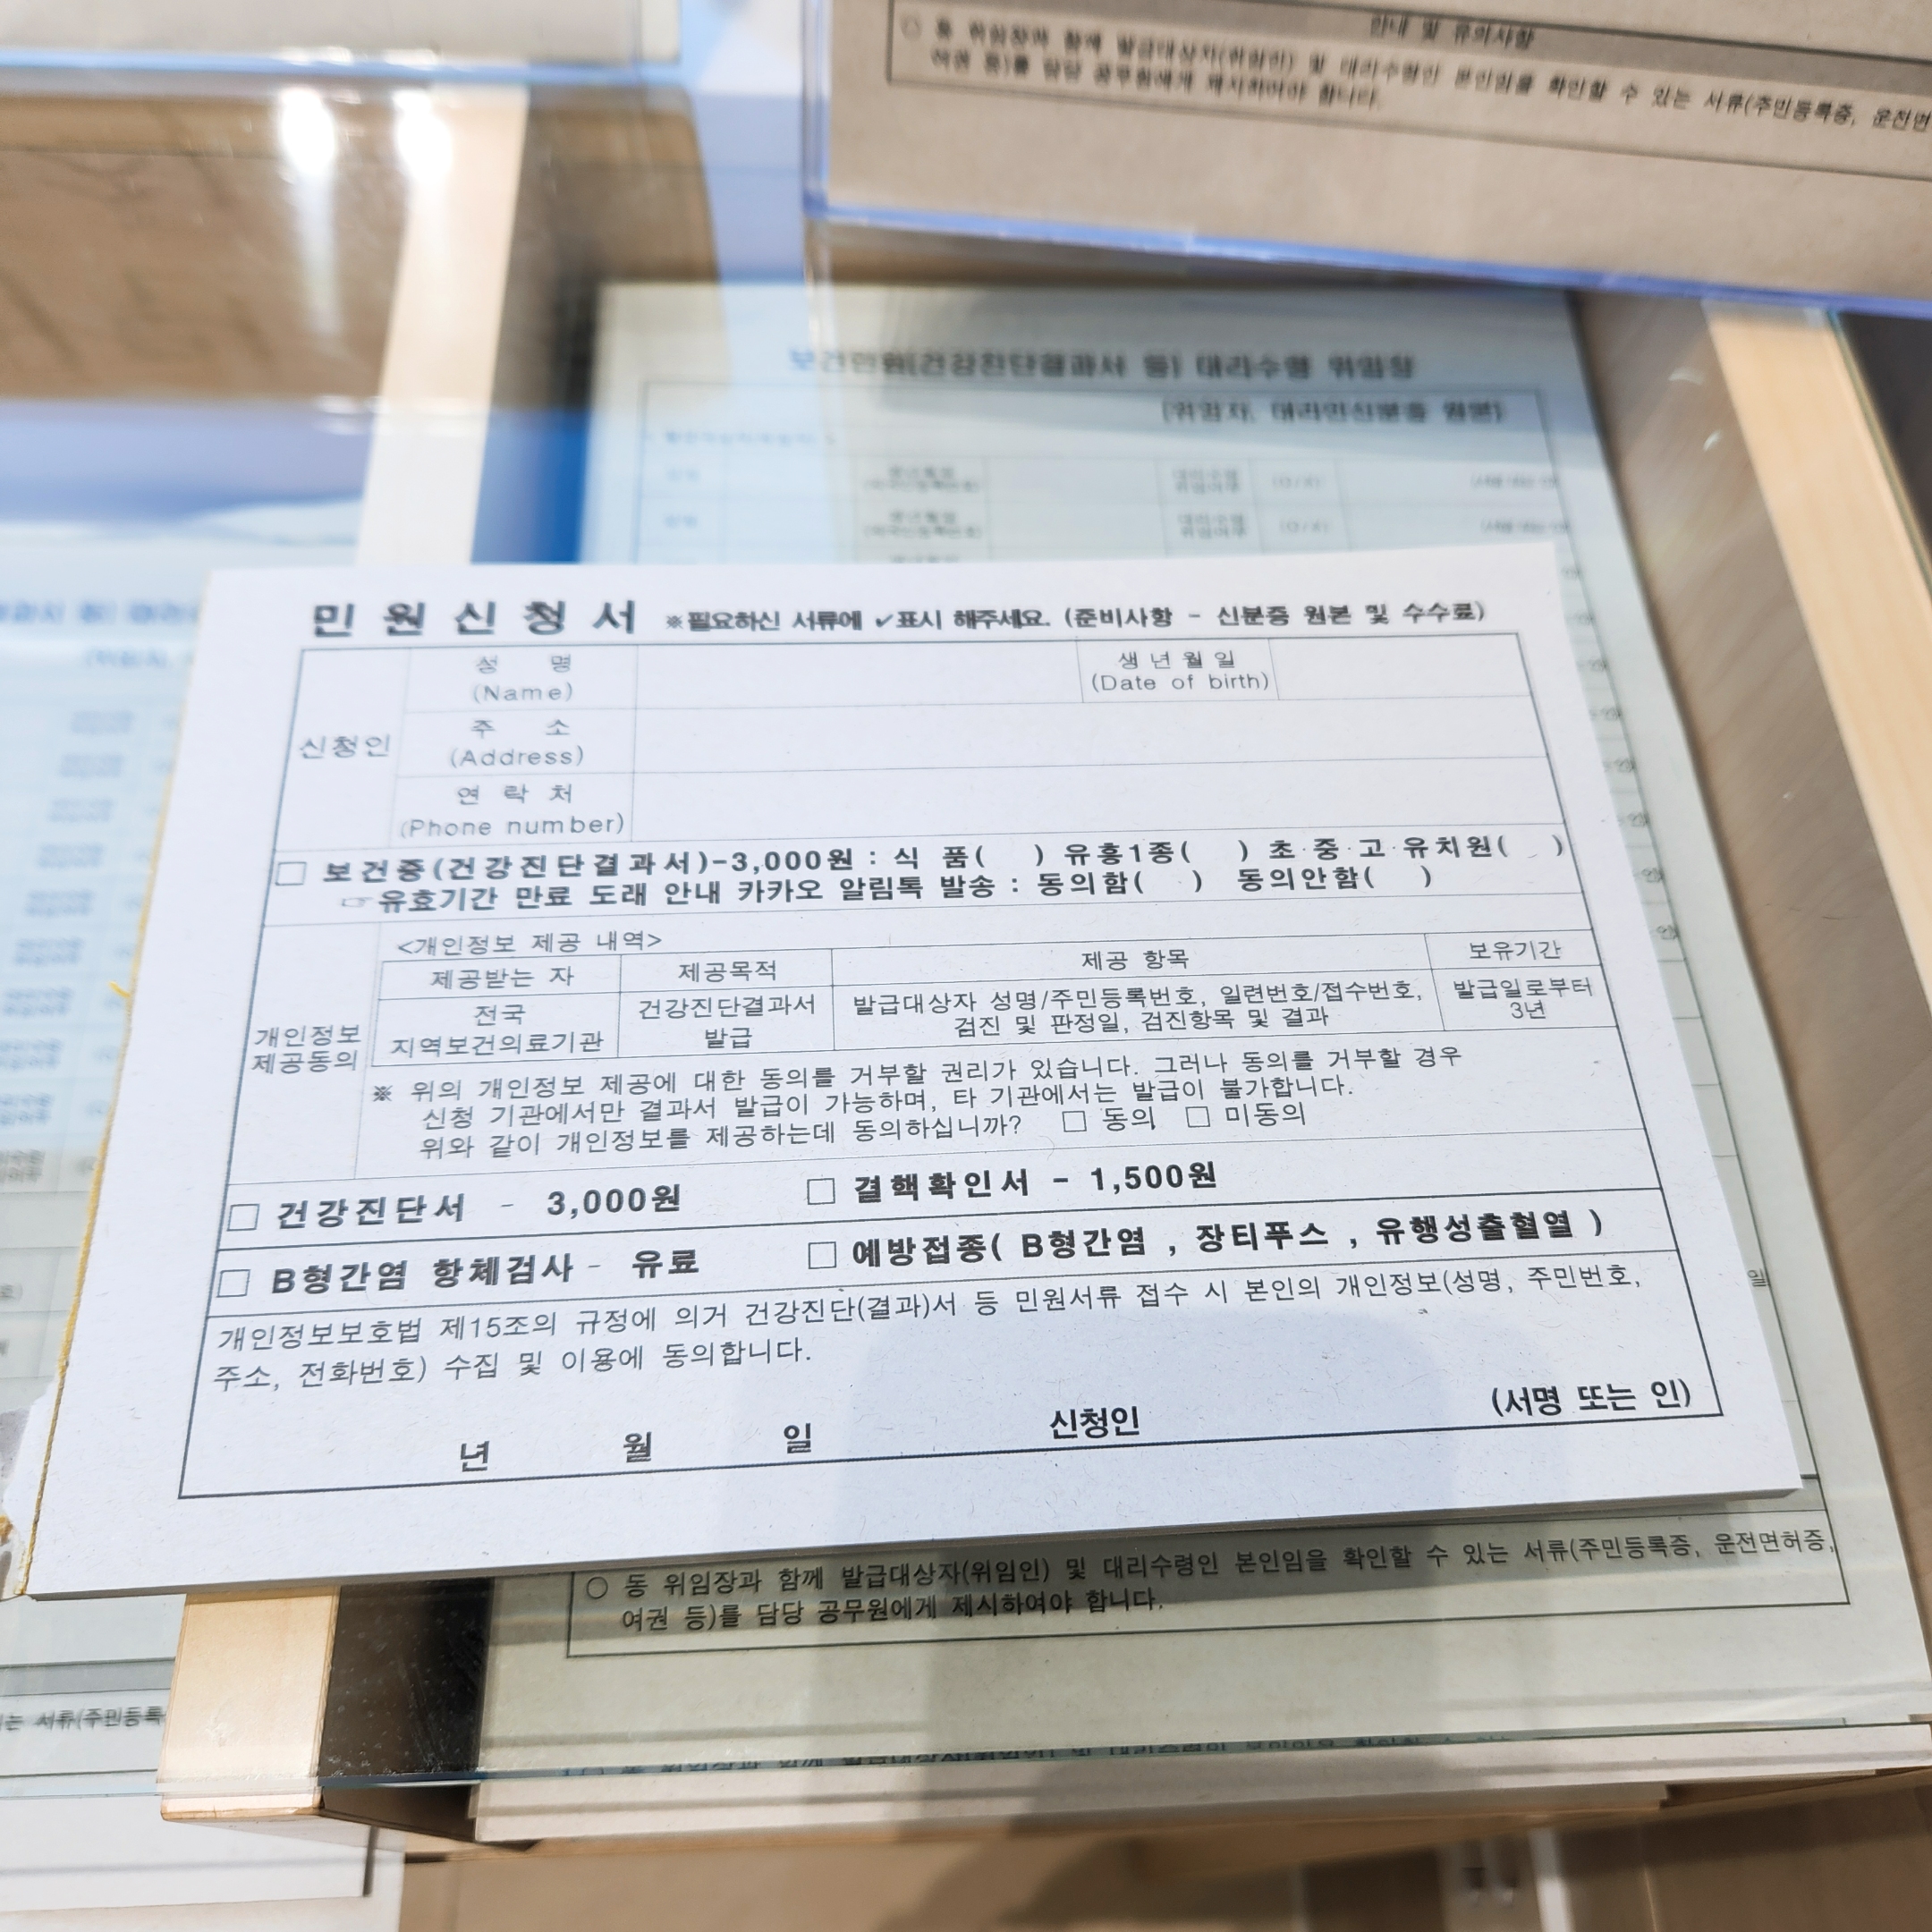 안내 및 유의사항
동 위임장과 함께 발급대상자(위임인) 및 대리수령인 본인임을 확인할 수 있는 서류(주민등록증, 운전면
여권 등)를 담당 공무원에게 제시하여야 합니다.
보건민원(건강진단결과서 등) 대리수령 위임장
(위임자, 대리인신분증 원본)
민 원 신 청 서 ※필요하신 서류에 ✓표시 해주세요. (준비사항 - 신분증 원본 및 수수료)
신청인
성 명
(Name)
생년월일
(Date of birth)
주 소
(Address)
연 락 처
(Phone number)
□ 보건증(건강진단결과서)-3,000원 : 식 품( ) 유흥1종( ) 초·중·고·유치원( )
☞유효기간 만료 도래 안내 카카오 알림톡 발송 : 동의함( ) 동의안함( )
개인정보
제공동의
<개인정보 제공 내역>
제공받는 자 제공목적 제공 항목 보유기간
전국
지역보건의료기관
건강진단결과서
발급
발급대상자 성명/주민등록번호, 일련번호/접수번호,
검진 및 판정일, 검진항목 및 결과
발급일로부터
3년
※ 위의 개인정보 제공에 대한 동의를 거부할 권리가 있습니다. 그러나 동의를 거부할 경우
신청 기관에서만 결과서 발급이 가능하며, 타 기관에서는 발급이 불가합니다.
위와 같이 개인정보를 제공하는데 동의하십니까? □ 동의 □ 미동의
□ 건강진단서 - 3,000원 □ 결핵확인서 - 1,500원
□ B형간염 항체검사 - 유료 □ 예방접종( B형간염 , 장티푸스 , 유행성출혈열 )
개인정보보호법 제15조의 규정에 의거 건강진단(결과)서 등 민원서류 접수 시 본인의 개인정보(성명, 주민번호,
주소, 전화번호) 수집 및 이용에 동의합니다.
년 월 일 신청인 (서명 또는 인)
○ 동 위임장과 함께 발급대상자(위임인) 및 대리수령인 본인임을 확인할 수 있는 서류(주민등록증, 운전면허증,
여권 등)를 담당 공무원에게 제시하여야 합니다.
는 서류(주민등록